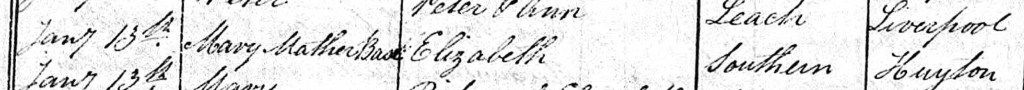 Peter & Ann Leach Liverpool
Jany 13th Mary Mather Base Elizabeth Southern Huyton
Jany 13th Mary